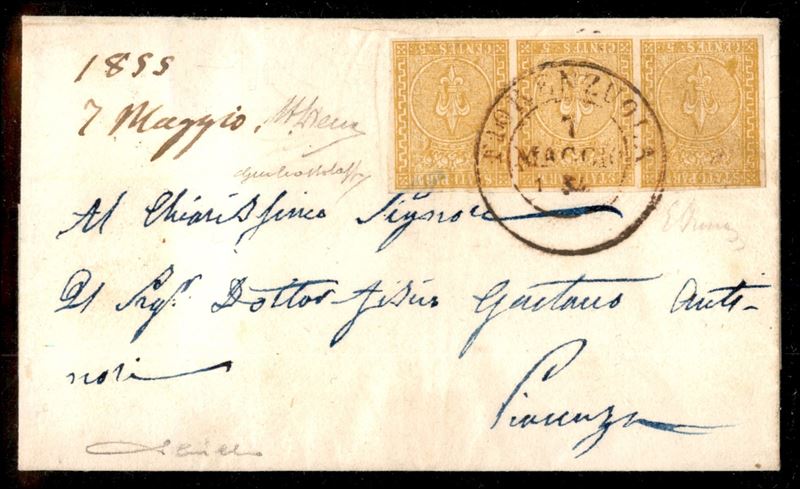 1855
7 Maggio
CENTES. 5 CENTES. 5 CENTES. 5
FIORENZUOLA
7
MAGGIO
Al Chiarissimo Signore
Il Sigr. Dottor Gaetano Anti-
nori
Piacenza